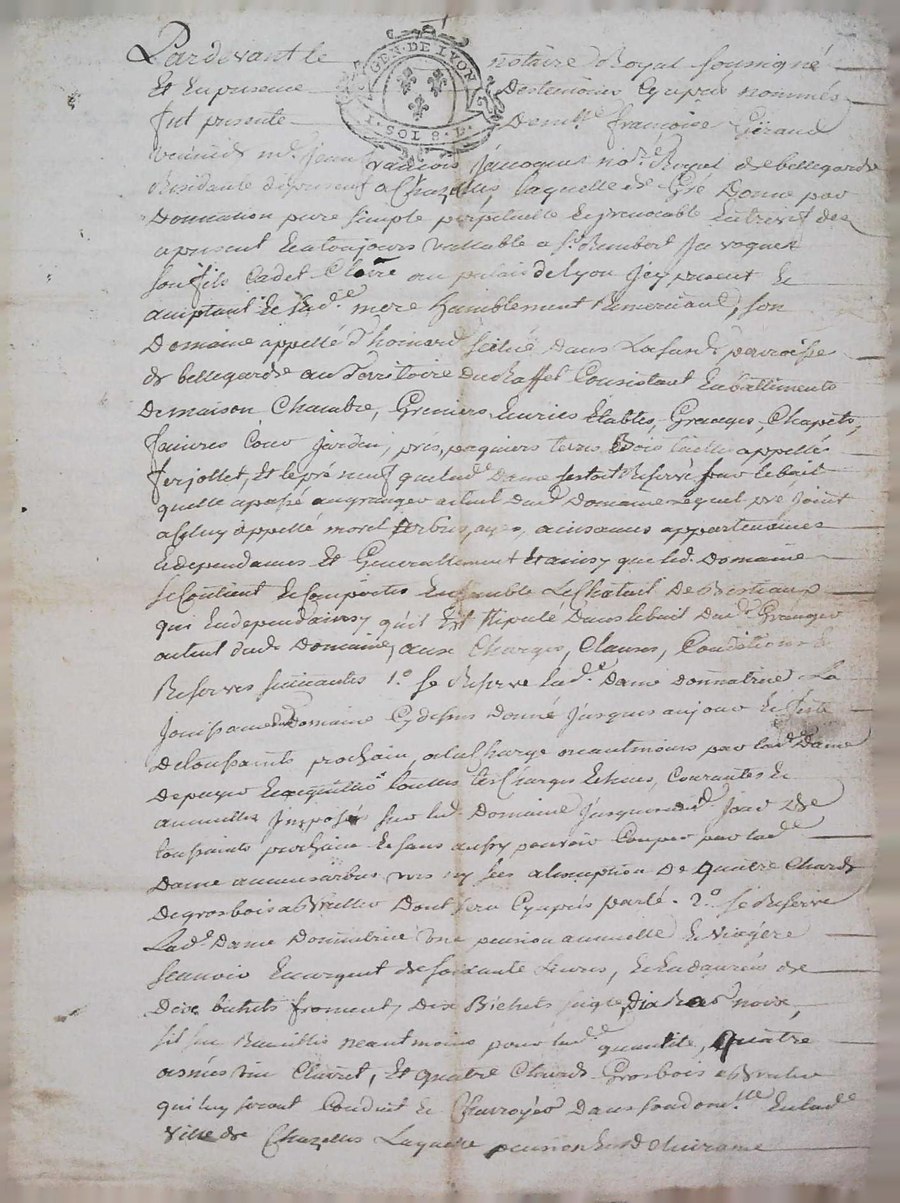 GEN. DE LYON
1. SOL 8. D.
Pardevant le notaire Royal soussigné
Et en presence Des temoins Cy apres nommés
fut presente Demlle françoise Giraud
françois Jacquet no.re Royal de bellegarde
Residante a Chazelles, laquelle de Gré Donne par
Donnation pure simple perpetuelle et irrevocable Entre vif des
a present et a toujours vallable a St. Rambert Jacquet
son fils Cadet Clerc au palais de Lyon Icy present Et
aceptant Et lad.e mere humblement Remerciant, son
Domaine appellé d'honoré scitué Dans parroisse
de bellegarde au Territoire du Consistant En battiments
De maison Chambre, Greniers Ecuries Etables, Granges, Chapits,
Cour jardin, prés, paquiers terres Bois taillis appellé
ferjollet, et le pré neuf que lad.e Dame s'estoit Reservé par le bail
quelle a passé au granger actuel dud. Domaine lequel pré joint
a celuy appellé morel arbres, ayes, aisances appartenances
et dependances Et Generallement et ainsy que led. Domaine
se Contient Et Comporte Ensemble Le Chetail De Bestiaux
qui En depend ainsy qu'il Est stipulé Dans le bail Dud. Granger
actuel dud. Domaine, aux Charges, Clauses, Conditions &
Reserves suivantes 1.o se Reserve lad.e Dame donnatrice La
Jouissance du Domaine Cy dessus Donné Jusques au jour et feste
De Toussaints prochain, a la Charge neantmoins par lad.e Dame
De payer Et acquitter toutes les Charges Courantes Et
annuelles Imposés sur led. Domaine Jusques aud. Jour de
toussaints prochain Et sans aussy pouvoir Couper par lad.e
Dame aucuns arbres a l'exception De quatre Chards
De gros bois a Bruller Dont sera Cy apres parlé. 2.o se Reserve
Lad.e Dame Donnatrice une pension annuelle Et viagere
scavoir En argent de soixante Livres, Et En danrées de
Dix bichets froment, Dix Bichets seigle, Dix noix,
neantmoins pour lad.e quantité, quatre
asnées vin Clairet, Et quatre Chards Gros bois a Bruler
qui luy seront Conduit Et Charroyés Dans son dom.lle En lad.e
Ville de Chazelles Laquelle pension